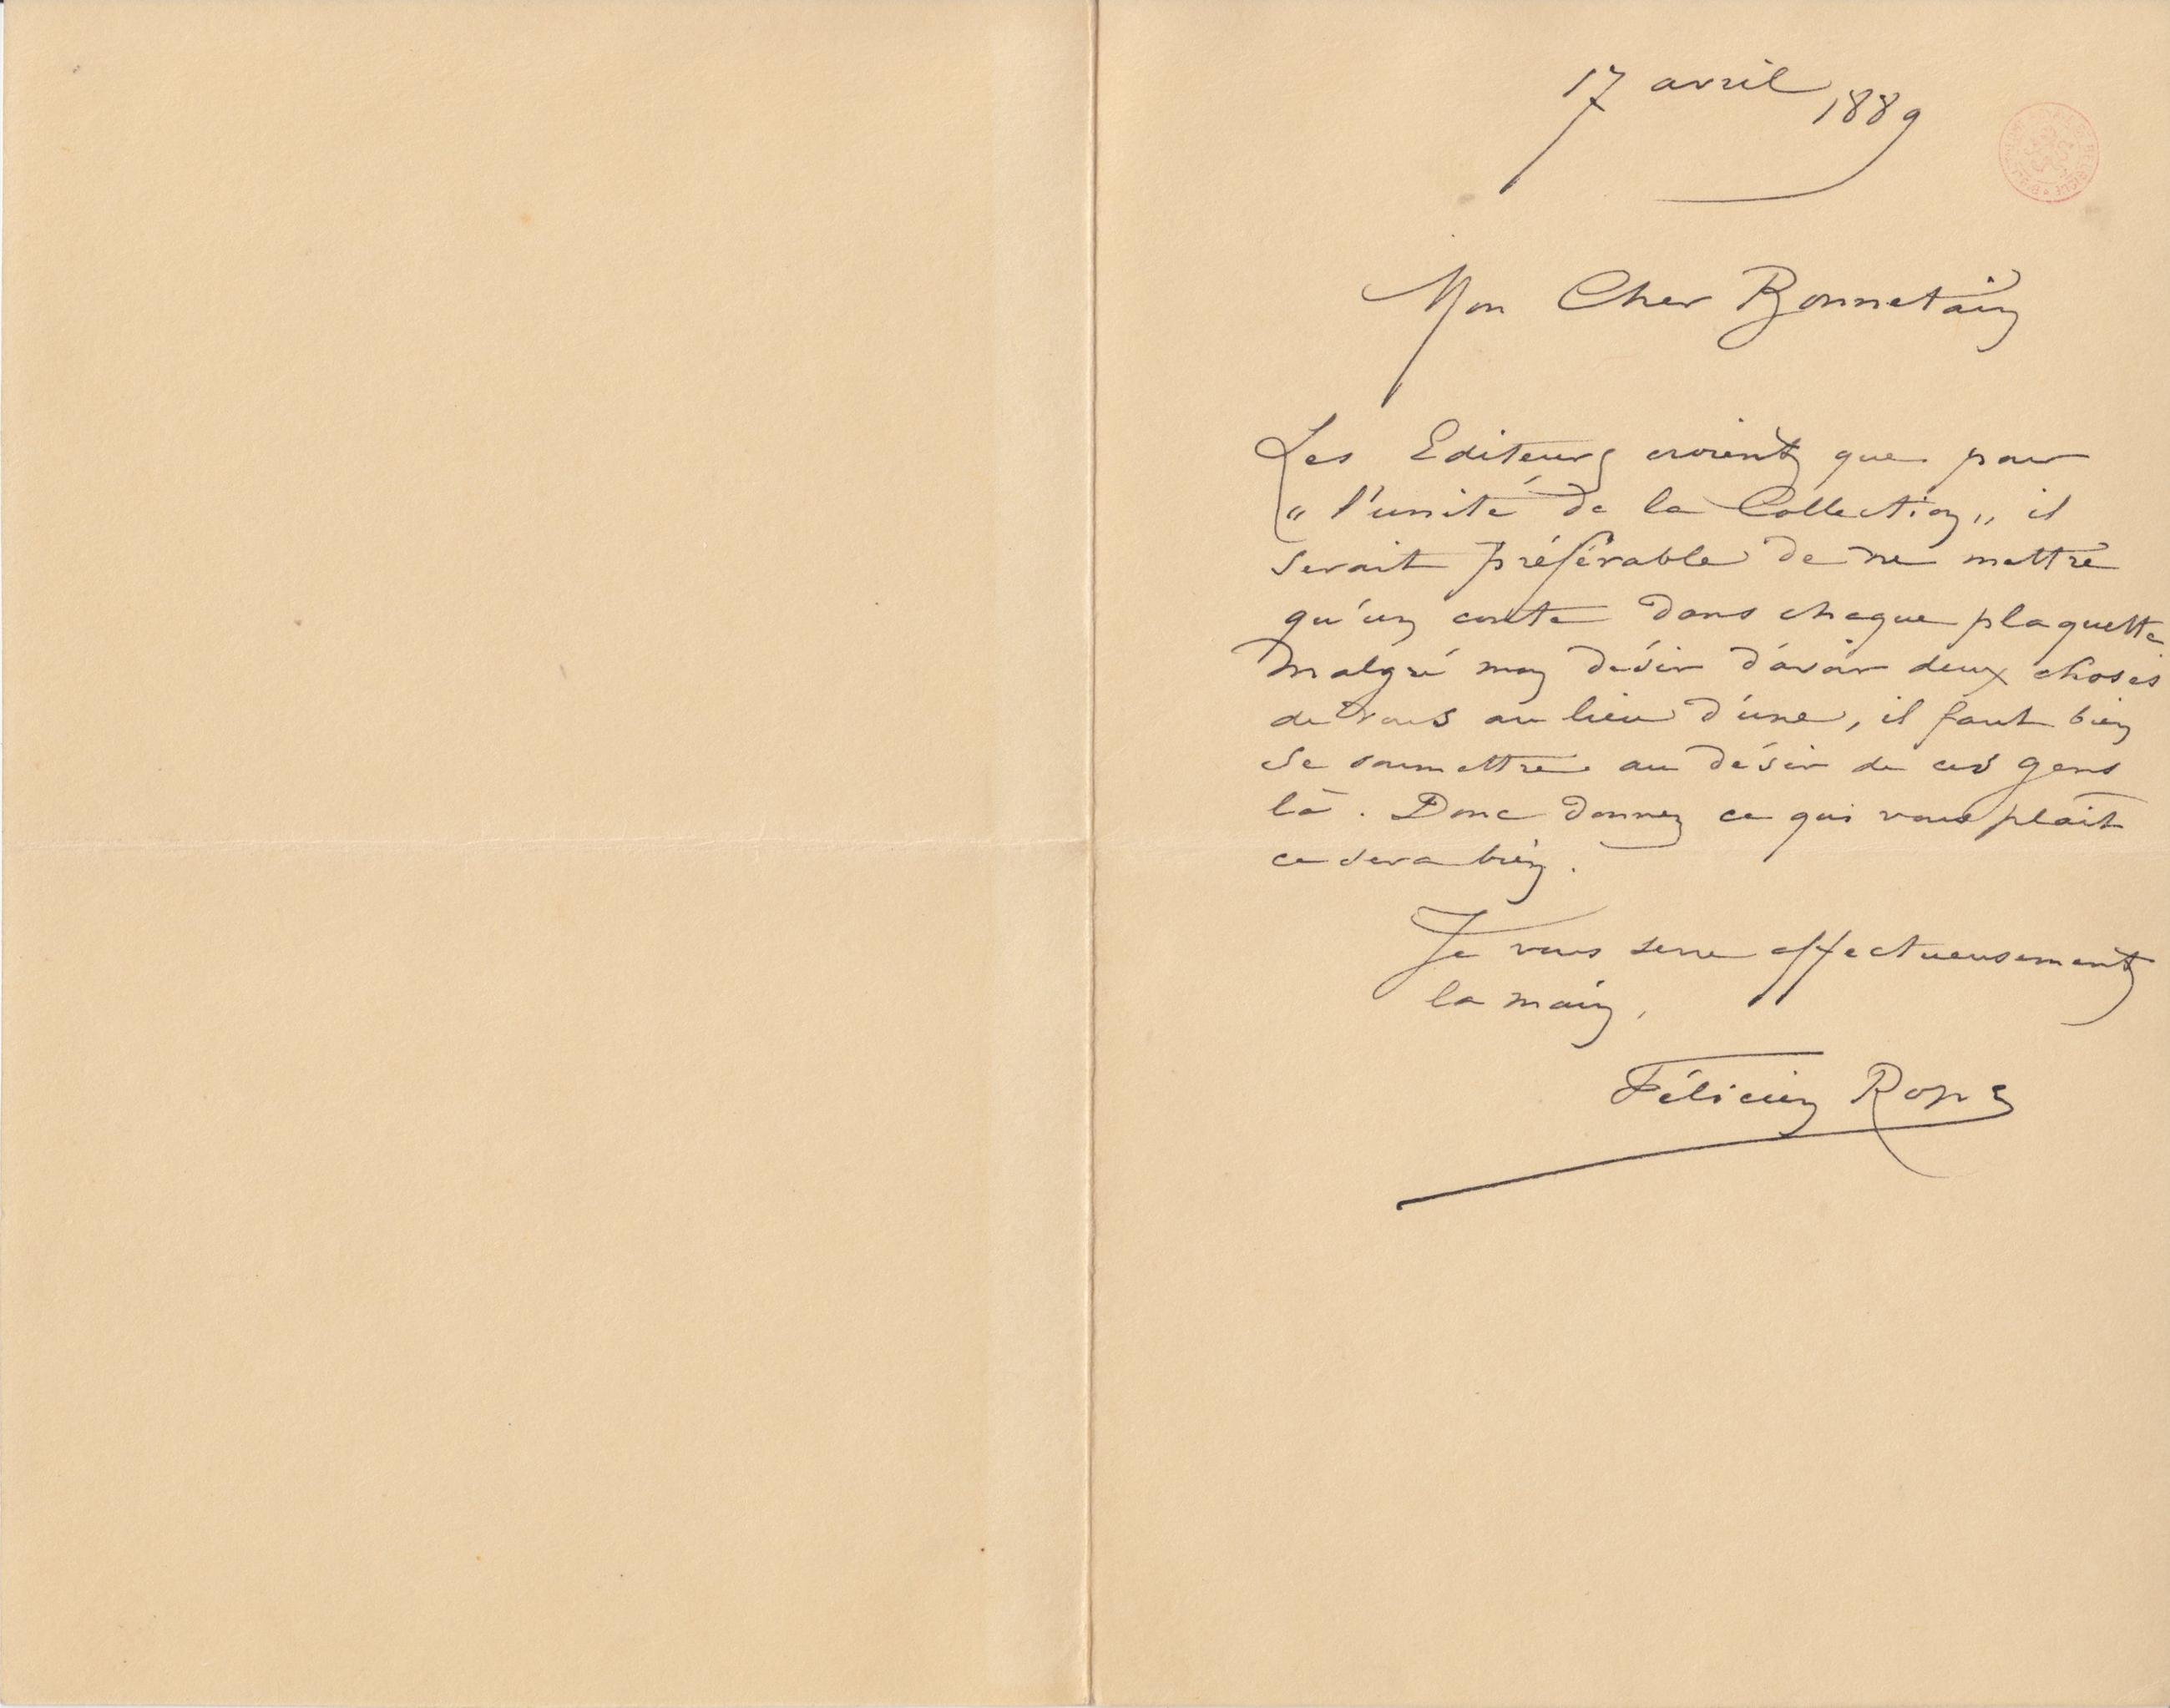 17 avril 1889
Mon Cher Bonnetain
Les Editeurs croient que pour
"l'unité de la Collection,, il
serait préférable de ne mettre
qu'un conte dans chaque plaquette
Malgré mon désir d'avoir deux choses
de vous au lieu d'une, il faut bien
se soumettre au désir de ces gens
là. Donc donnez ce qui vous plait
ce sera bien.
Je vous serre affectueusement
la main,
Félicien Rops